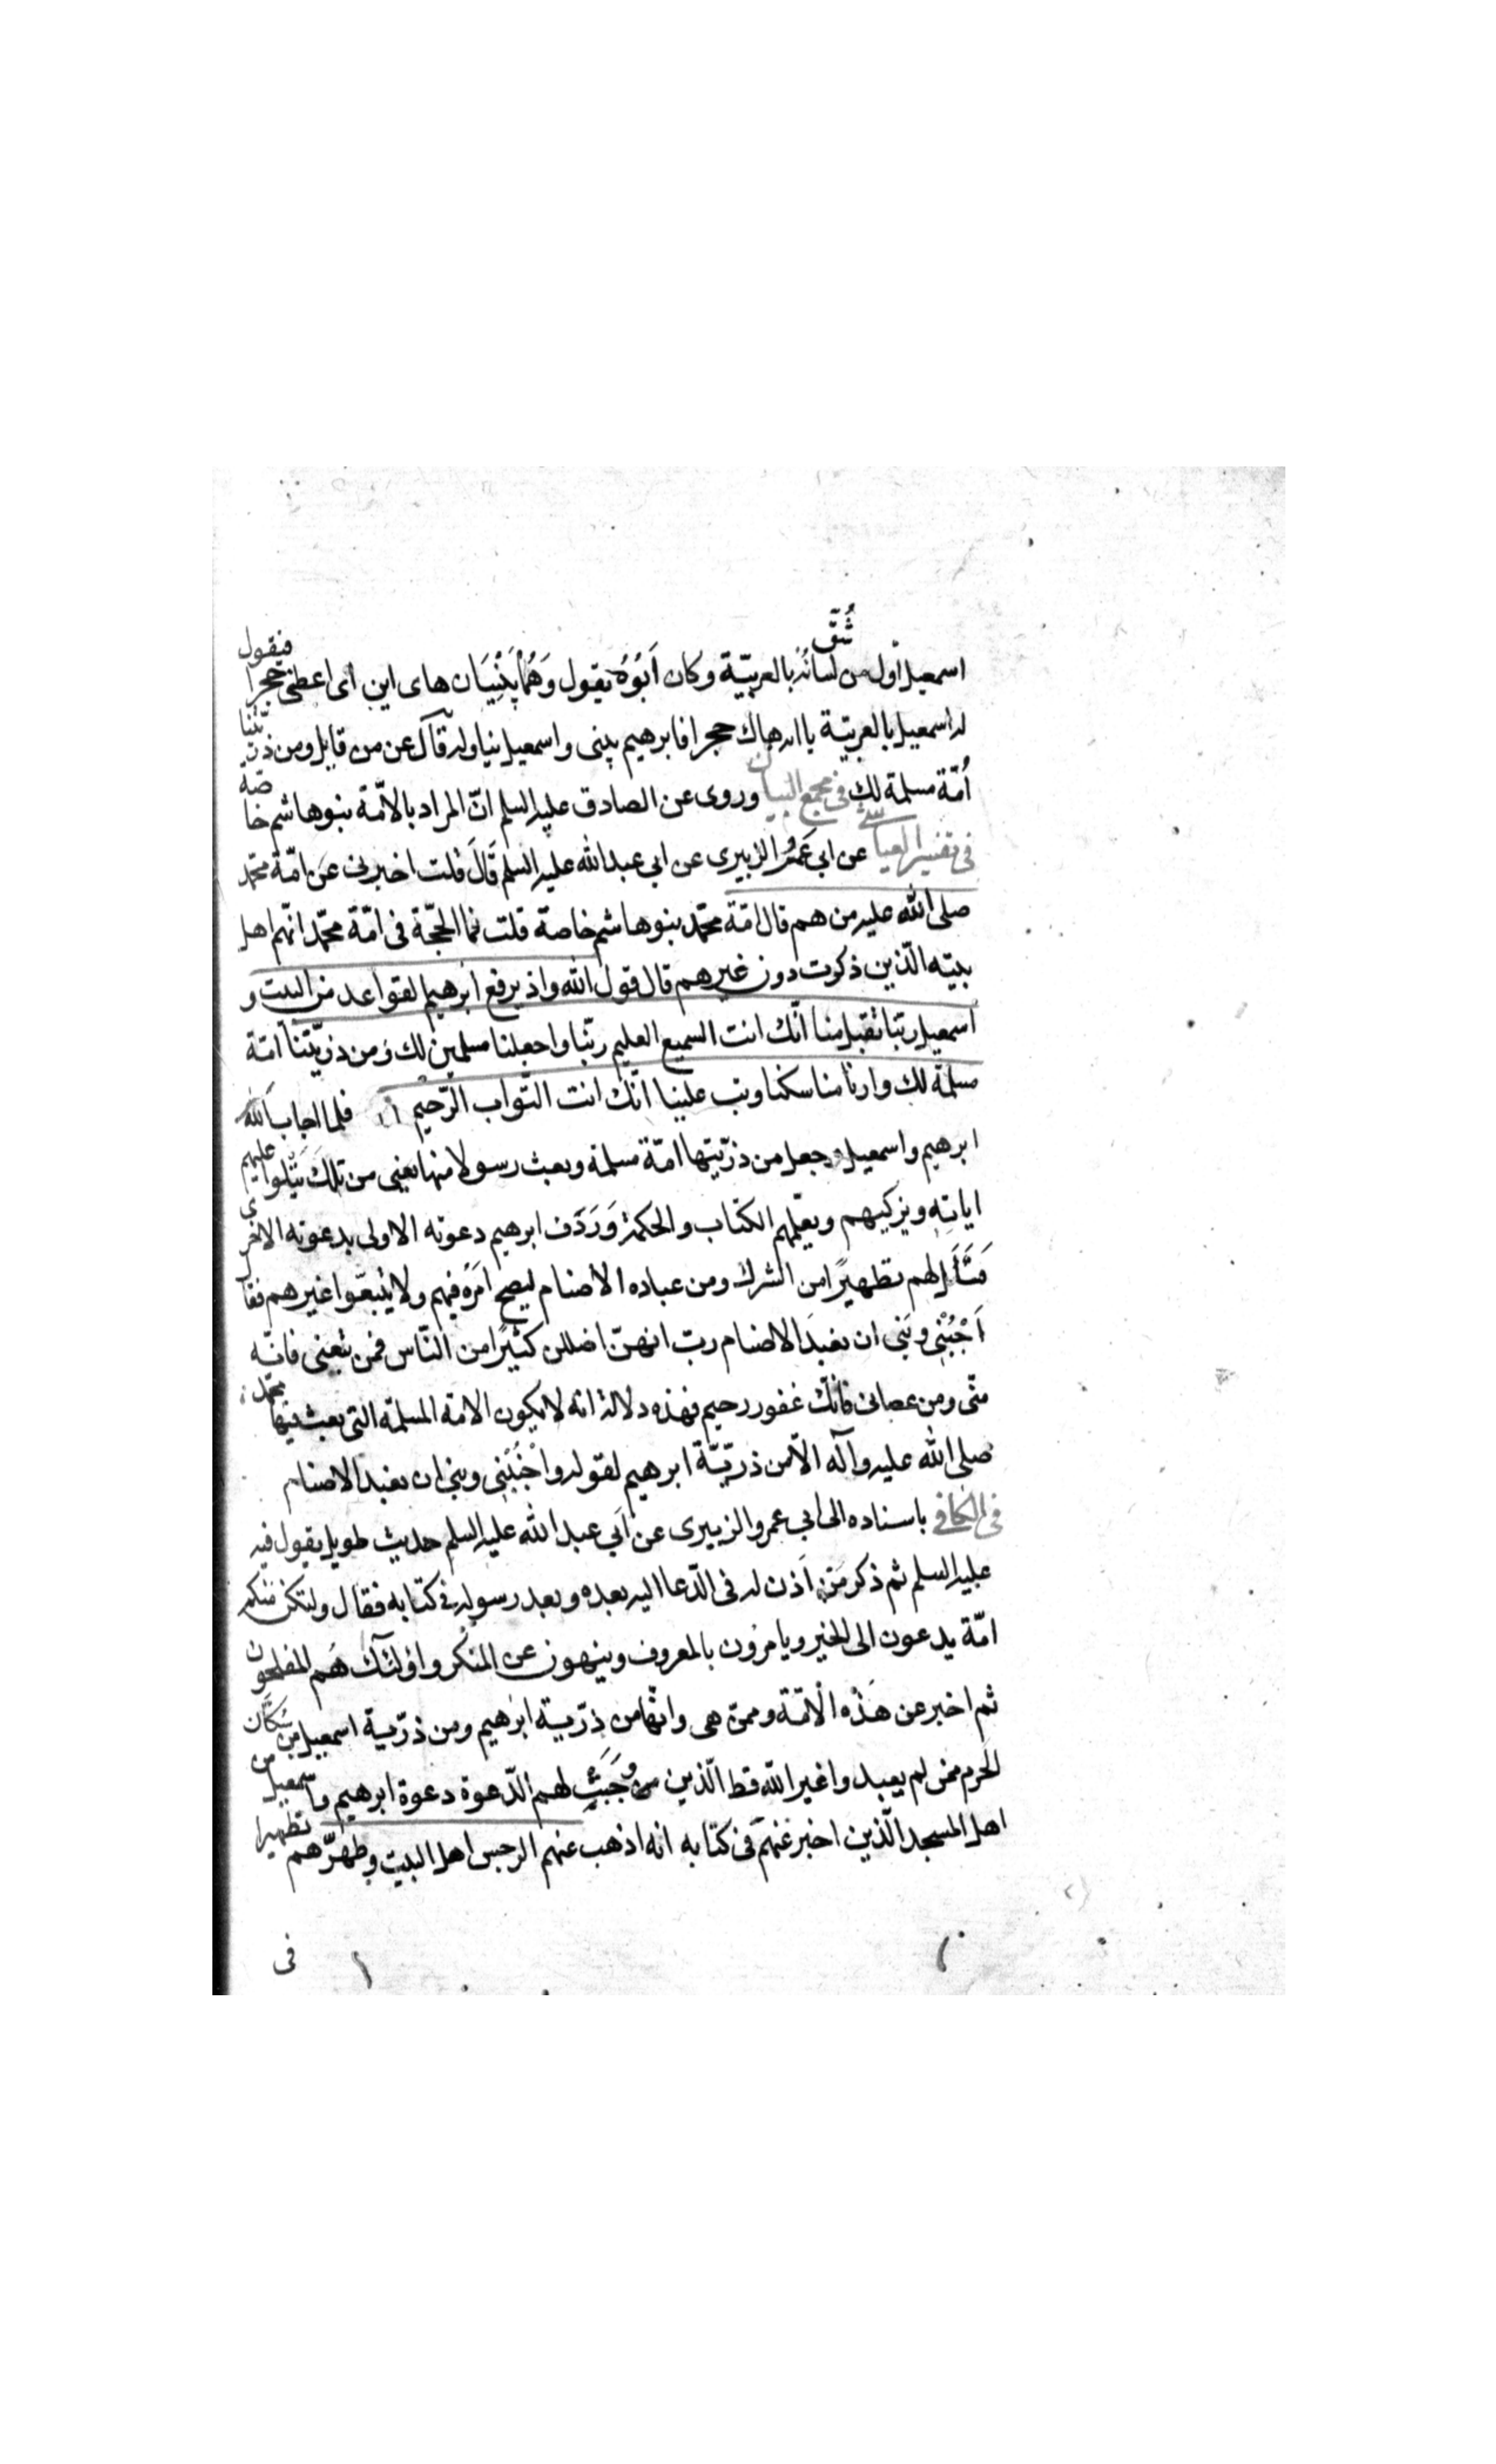 اسمعيل اول من شُقّ لسانه بالعربيّة وكان اَبُوهُ يقول وَهُمَا يَبْنِيَان هاى ابن اى اعطنى حجرا فيقول
له اسمعيل بالعربيّة يا ابه هاك حجرا فابرهيم يبنى واسمعيل يناوله قال عن من قايل ومن ذرّيّتنا
اُمّة مسلمة لك فى مجمع البيان وروى عن الصادق عليه السلم انّ المراد بالامّة بنوهاشم خاصّة
فى تفسير العياشى عن ابى عَمْرو الزبيرى عن ابى عبد الله عليه السلم قَالَ قلت اخبرنى عَن امّة محمّد
صلى الله عليه من هم قال امّة محمّد بنوهاشم خاصة قلت فما الحجّة فى امّة محمّد انّهم اهل
بيته الّذين ذكرت دون غيرهم قال قول الله واذ يرفع ابرهيم القواعد من البيت و
اسمعيل ربّنا تقبل منا انّك انت السميع العليم ربّنا واجعلنا مسلمين لك ومن ذرّيّتنا امّة
مسلمة لك وارنا مناسكنا وتب علينا انّك انت التّواب الرّحيم فلما اجاب الله
ابرهيم واسمعيل وجعل من ذرّيّتها امّة مسلمة وبعث رسولا منها يعنى من تلك يَتْلوا عليهم
اياته ويزكيهم ويعلّمهم الكتاب والحكمة وَرَدَف ابرهيم دعوته الاولى بدعوته الاخرى
فَسَأَلَ لهم تطهيرًا من الشرك ومن عباده الاصنام ليصحّ امَره فيهم ولا يتّبعوا غيرهم فقال
اَجْنُبْنِى وبَنى ان نعبدَ الاصنام ربّ انهنّ اضللن كثيرًا من النّاس فمن تبعنى فانّه
منّى ومن عصانى فانّك غفور رحيم فهذه دلالة انه لا يكون الامة المسلمة التى بعث فيها محمّد
صلى الله عليه وآله الّا من ذرّيّة ابرهيم لقوله واجْنُبْنِى وبنى ان نعبد الاصنام
فى الكافى باسناده الى ابى عمرو الزبيرى عن اَبى عبد الله عليه السلم حديث طويل يقول فيه
عليه السلم ثم ذكر مَن اَذن له فى الدّعا اليه بعده وبعد رسوله فى كتابه فقال ولتكن منكم
امّة يدعون الى الخير ويامرون بالمعروف وينهون عن المنكر واولئك هُم المفلحون
ثم اخبر عن هَذْه الامّة وممن هى وانّها من ذرّيّة ابرهيم ومن ذرّيّة اسمعيل من سُكّان
الحَرم ممن لم يعبدوا غير الله قط الّذين وَجَبَت لهم الدّعوة دعوة ابرهيم واسمعيل من
اهل المسجد الّذين اخبر عَنهم فى كتابه انه اذهب عنهم الرجس اهل البيت وطهرّهم تطهيرا
فى